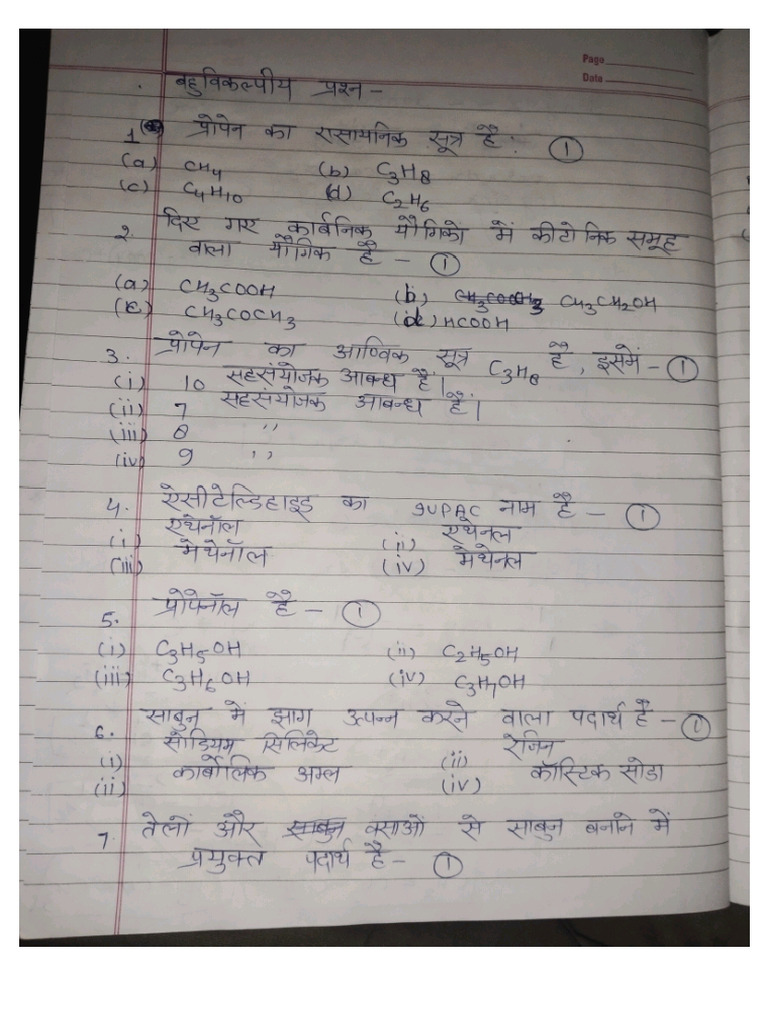 Page
Date
बहुविकल्पीय प्रश्न -
1 प्रोपेन का रासायनिक सूत्र है: ①
(a) CH4 (b) C3H8
(c) C4H10 (d) C2H6
2. दिए गए कार्बनिक यौगिकों में कीटोनिक समूह
वाला यौगिक है - ①
(a) CH3COOH (b) CH3CH2OH
(c) CH3COCH3 (d) HCOOH
3. प्रोपेन का आण्विक सूत्र C3H8 है, इसमें - ①
(i) 10 सहसंयोजक आबन्ध है।
(ii) 7 सहसंयोजक आबन्ध है।
(iii) 8 "
(iv) 9 "
4. ऐसीटेल्डिहाइड का IUPAC नाम है - ①
(i) एथेनॉल (ii) एथेनल
(iii) मेथेनॉल (iv) मेथेनल
5. प्रोपेनॉल है - ①
(i) C3H5OH (ii) C2H5OH
(iii) C3H6OH (iv) C3H7OH
6. साबुन में झाग उत्पन्न करने वाला पदार्थ है - ①
(i) सोडियम सिलिकेट (ii) रेजिन
(ii) कार्बोलिक अम्ल (iv) कॉस्टिक सोडा
7. तेलों और वसाओं से साबुन बनाने में
प्रयुक्त पदार्थ है - ①